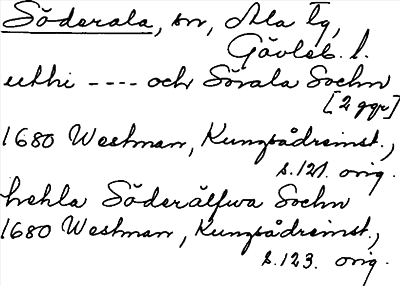 Söderala, sn, Ala tg,
Gävleb. l.
uthi ---- och Sörala Sochn
[2 ggr]
1680 Westman, Kungsådreinst.,
s.121. orig.
hehla Söderälfwa Sochn
1680 Westman, Kungsådreinst.,
s.123. orig.